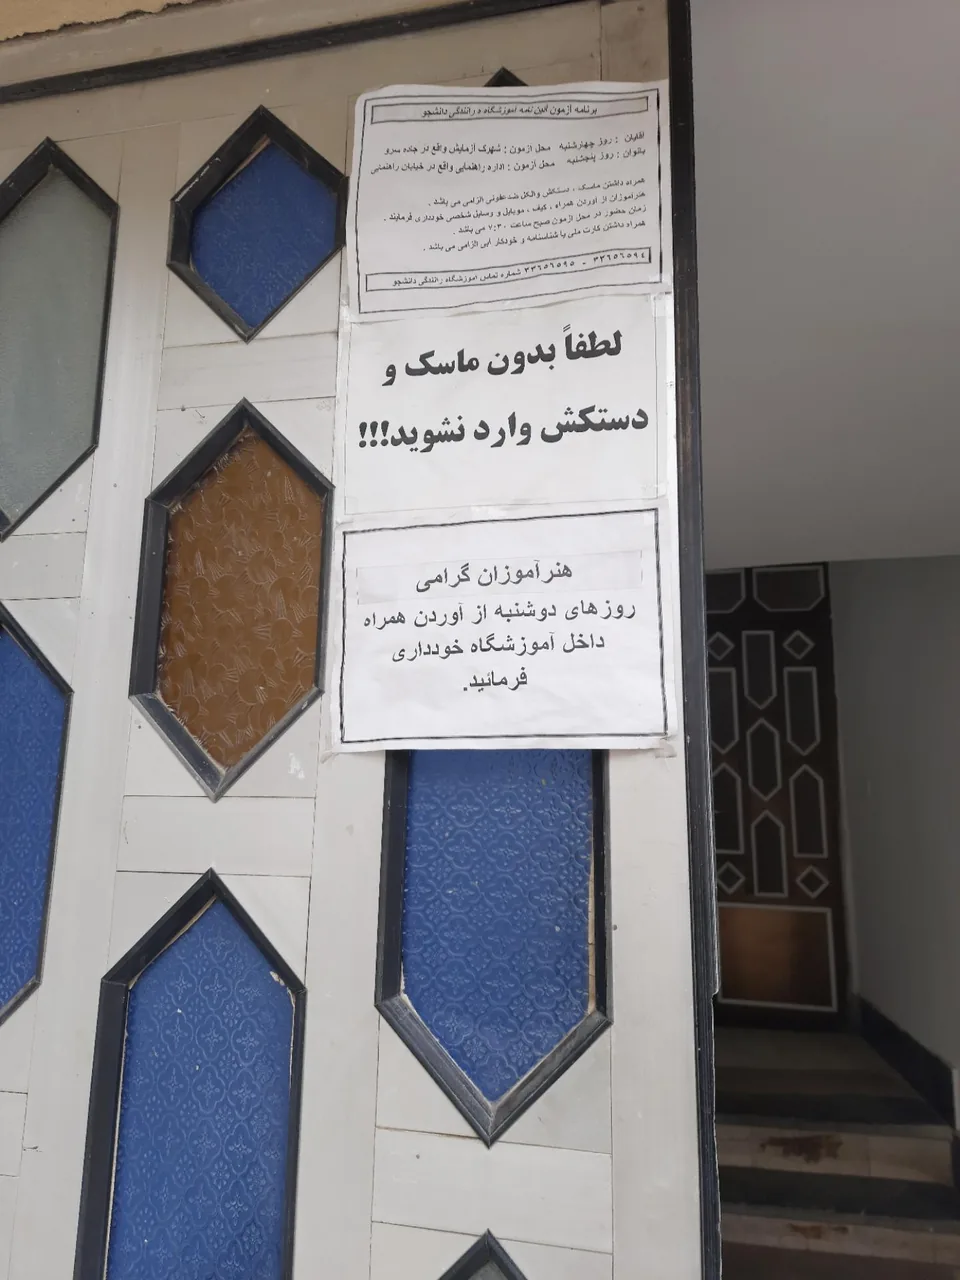 برنامه آزمون آئین نامه آموزشگاه رانندگی دانشجو
آقایان : روز چهارشنبه محل آزمون : شهرک آزمایش واقع در جاده سرو
بانوان : روز پنجشنبه محل آزمون : اداره راهنمایی واقع در خیابان راهنمائی
همراه داشتن ماسک ، دستکش والکل ضدعفونی الزامی می باشد .
هنرآموزان از آوردن همراه ، کیف ، موبایل و وسایل شخصی خودداری فرمایند .
زمان حضور در محل آزمون صبح ساعت ۷:۳۰ می باشد .
همراه داشتن کارت ملی یا شناسنامه و خودکار آبی الزامی می باشد .
۳۳۶۵۶۵۹۴ - ۳۳۶۵۶۵۹۵ شماره تماس آموزشگاه رانندگی دانشجو
لطفاً بدون ماسک و
دستکش وارد نشوید!!!
هنرآموزان گرامی
روزهای دوشنبه از آوردن همراه
داخل آموزشگاه خودداری
فرمائید.